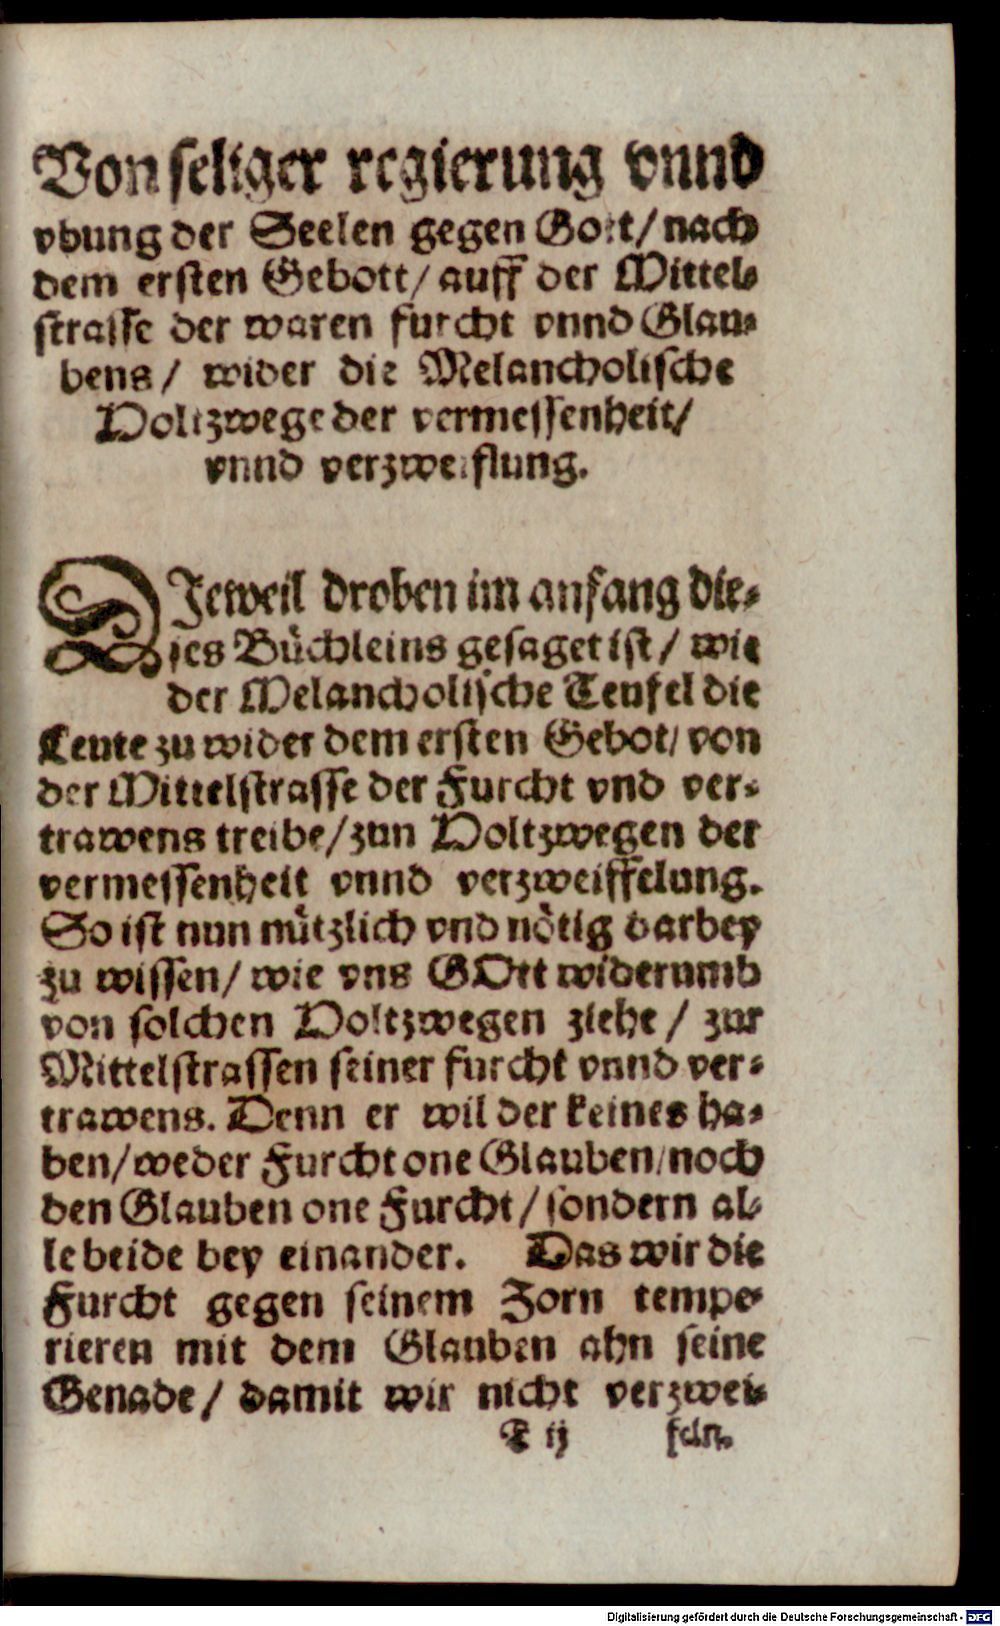 Von seliger regierung vnnd
vbung der Seelen gegen Gott/ nach
dem ersten Gebott/ auff der Mittel-
strasse der waren furcht vnnd Glau-
bens/ wider die Melancholische
Holtzwege der vermessenheit/
vnnd verzweiflung.
DIeweil droben im anfang die-
ses Bůchleins gesaget ist/ wie
der Melancholische Teufel die
Leute zu wider dem ersten Gebot/ von
der Mittelstrasse der Furcht vnd ver-
trawens treibe/ zun Holtzwegen der
vermessenheit vnnd verzweiffelung.
So ist nun nůtzlich vnd nötig darbey
zu wissen/ wie vns GOtt widerumb
von solchen Holtzwegen ziehe/ zur
Mittelstrassen seiner furcht vnnd ver-
trawens. Denn er wil der keines ha-
ben/ weder Furcht one Glauben/ noch
den Glauben one Furcht/ sondern al-
le beide bey einander. Das wir die
Furcht gegen seinem Zorn tempe-
rieren mit dem Glauben ahn seine
Genade/ damit wir nicht verzwei-
T ij feln.
Digitalisierung gefördert durch die Deutsche Forschungsgemeinschaft - DFG